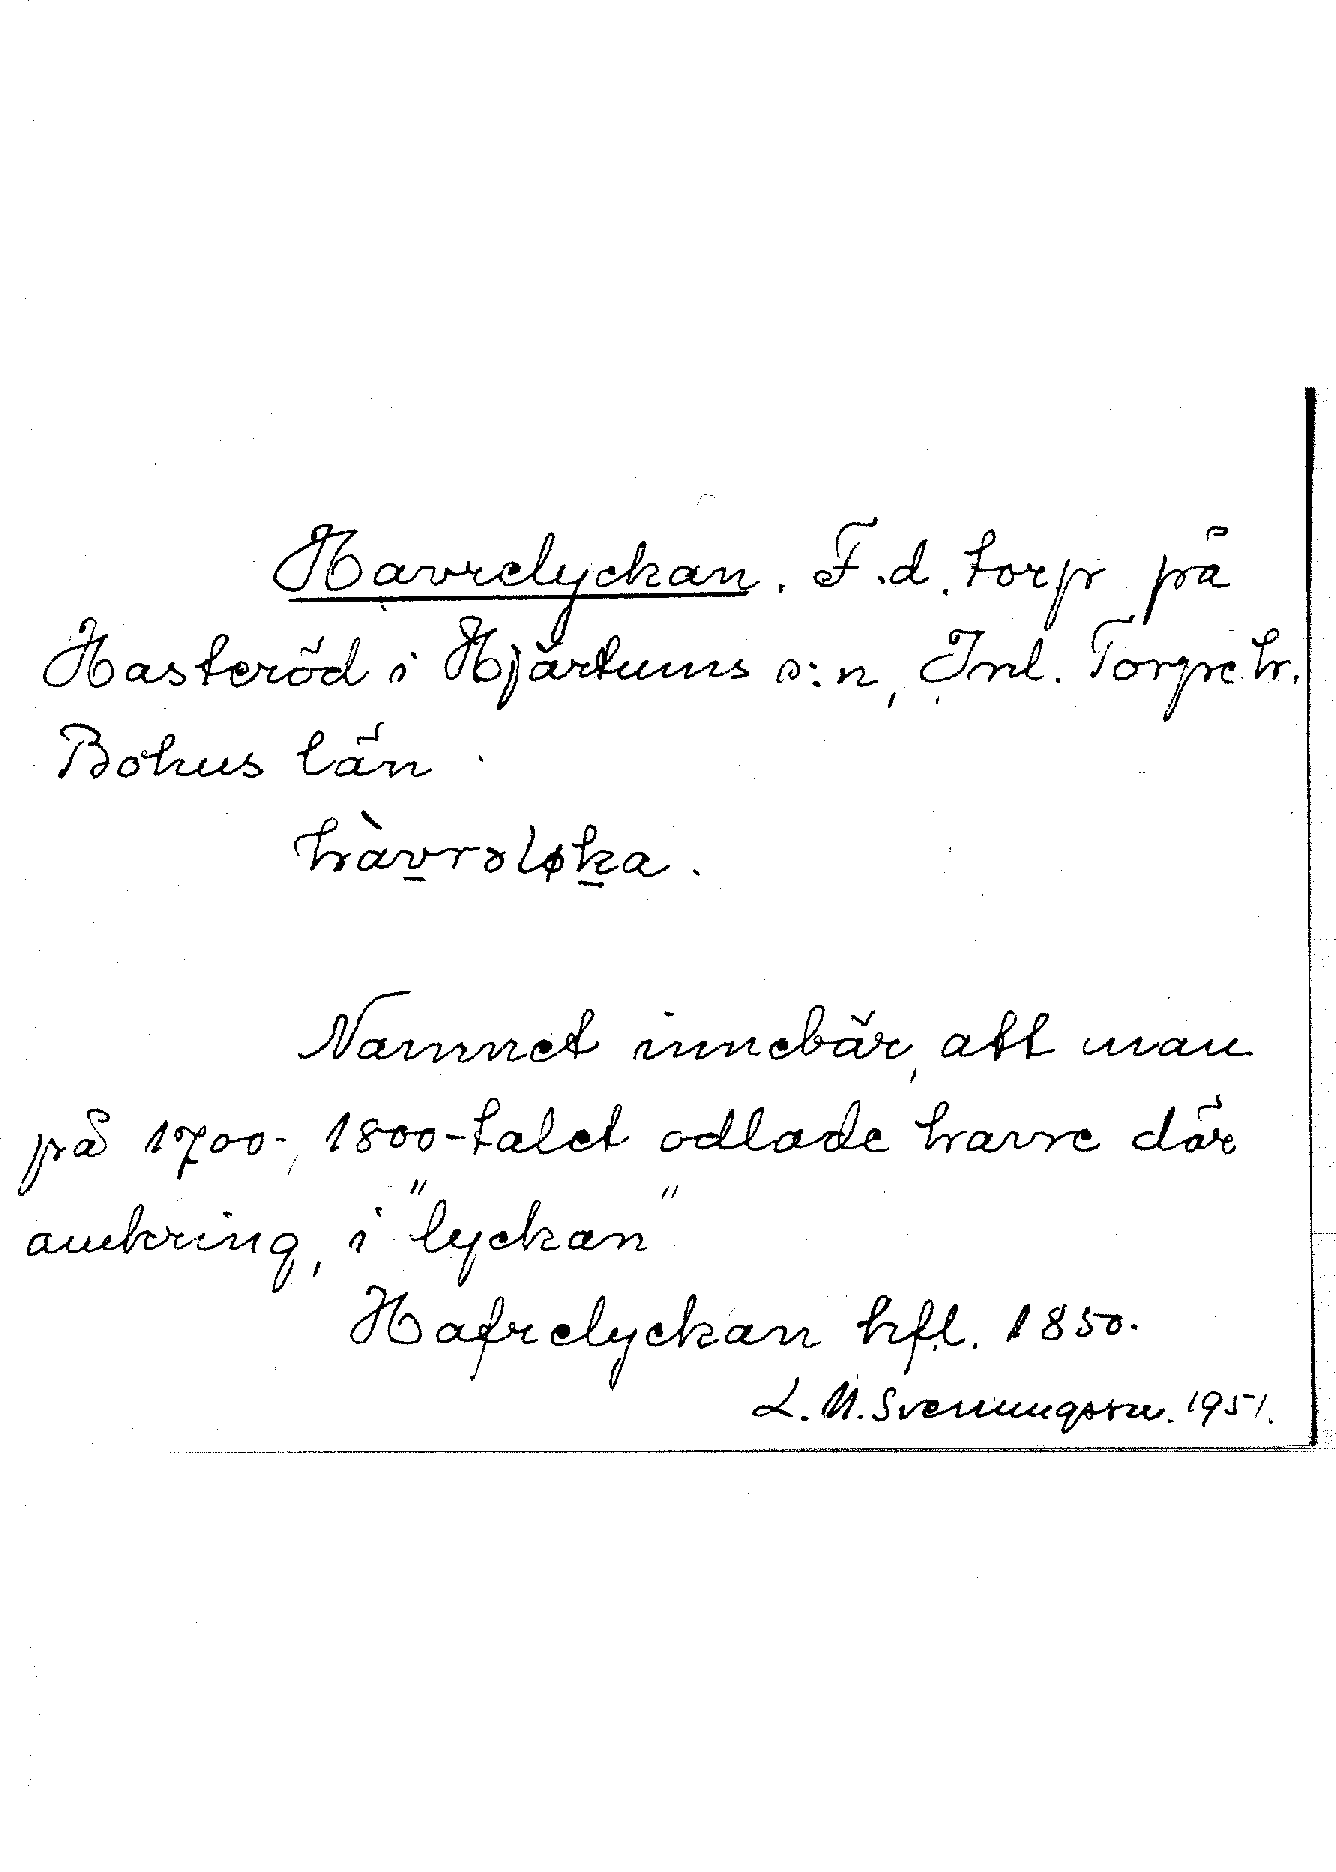 Havrelyckan. F.d. torp på
Hasteröd i Hjärtums s:n, Inl. Torpe hr.
Bohus län
hàvrəløka.
Namnet innebär, att man
på 1700-, 1800-talet odlade havre där
omkring, i "lyckan"
Hafrelyckan hfl. 1850.
L. M. Svenungsson. 1951.